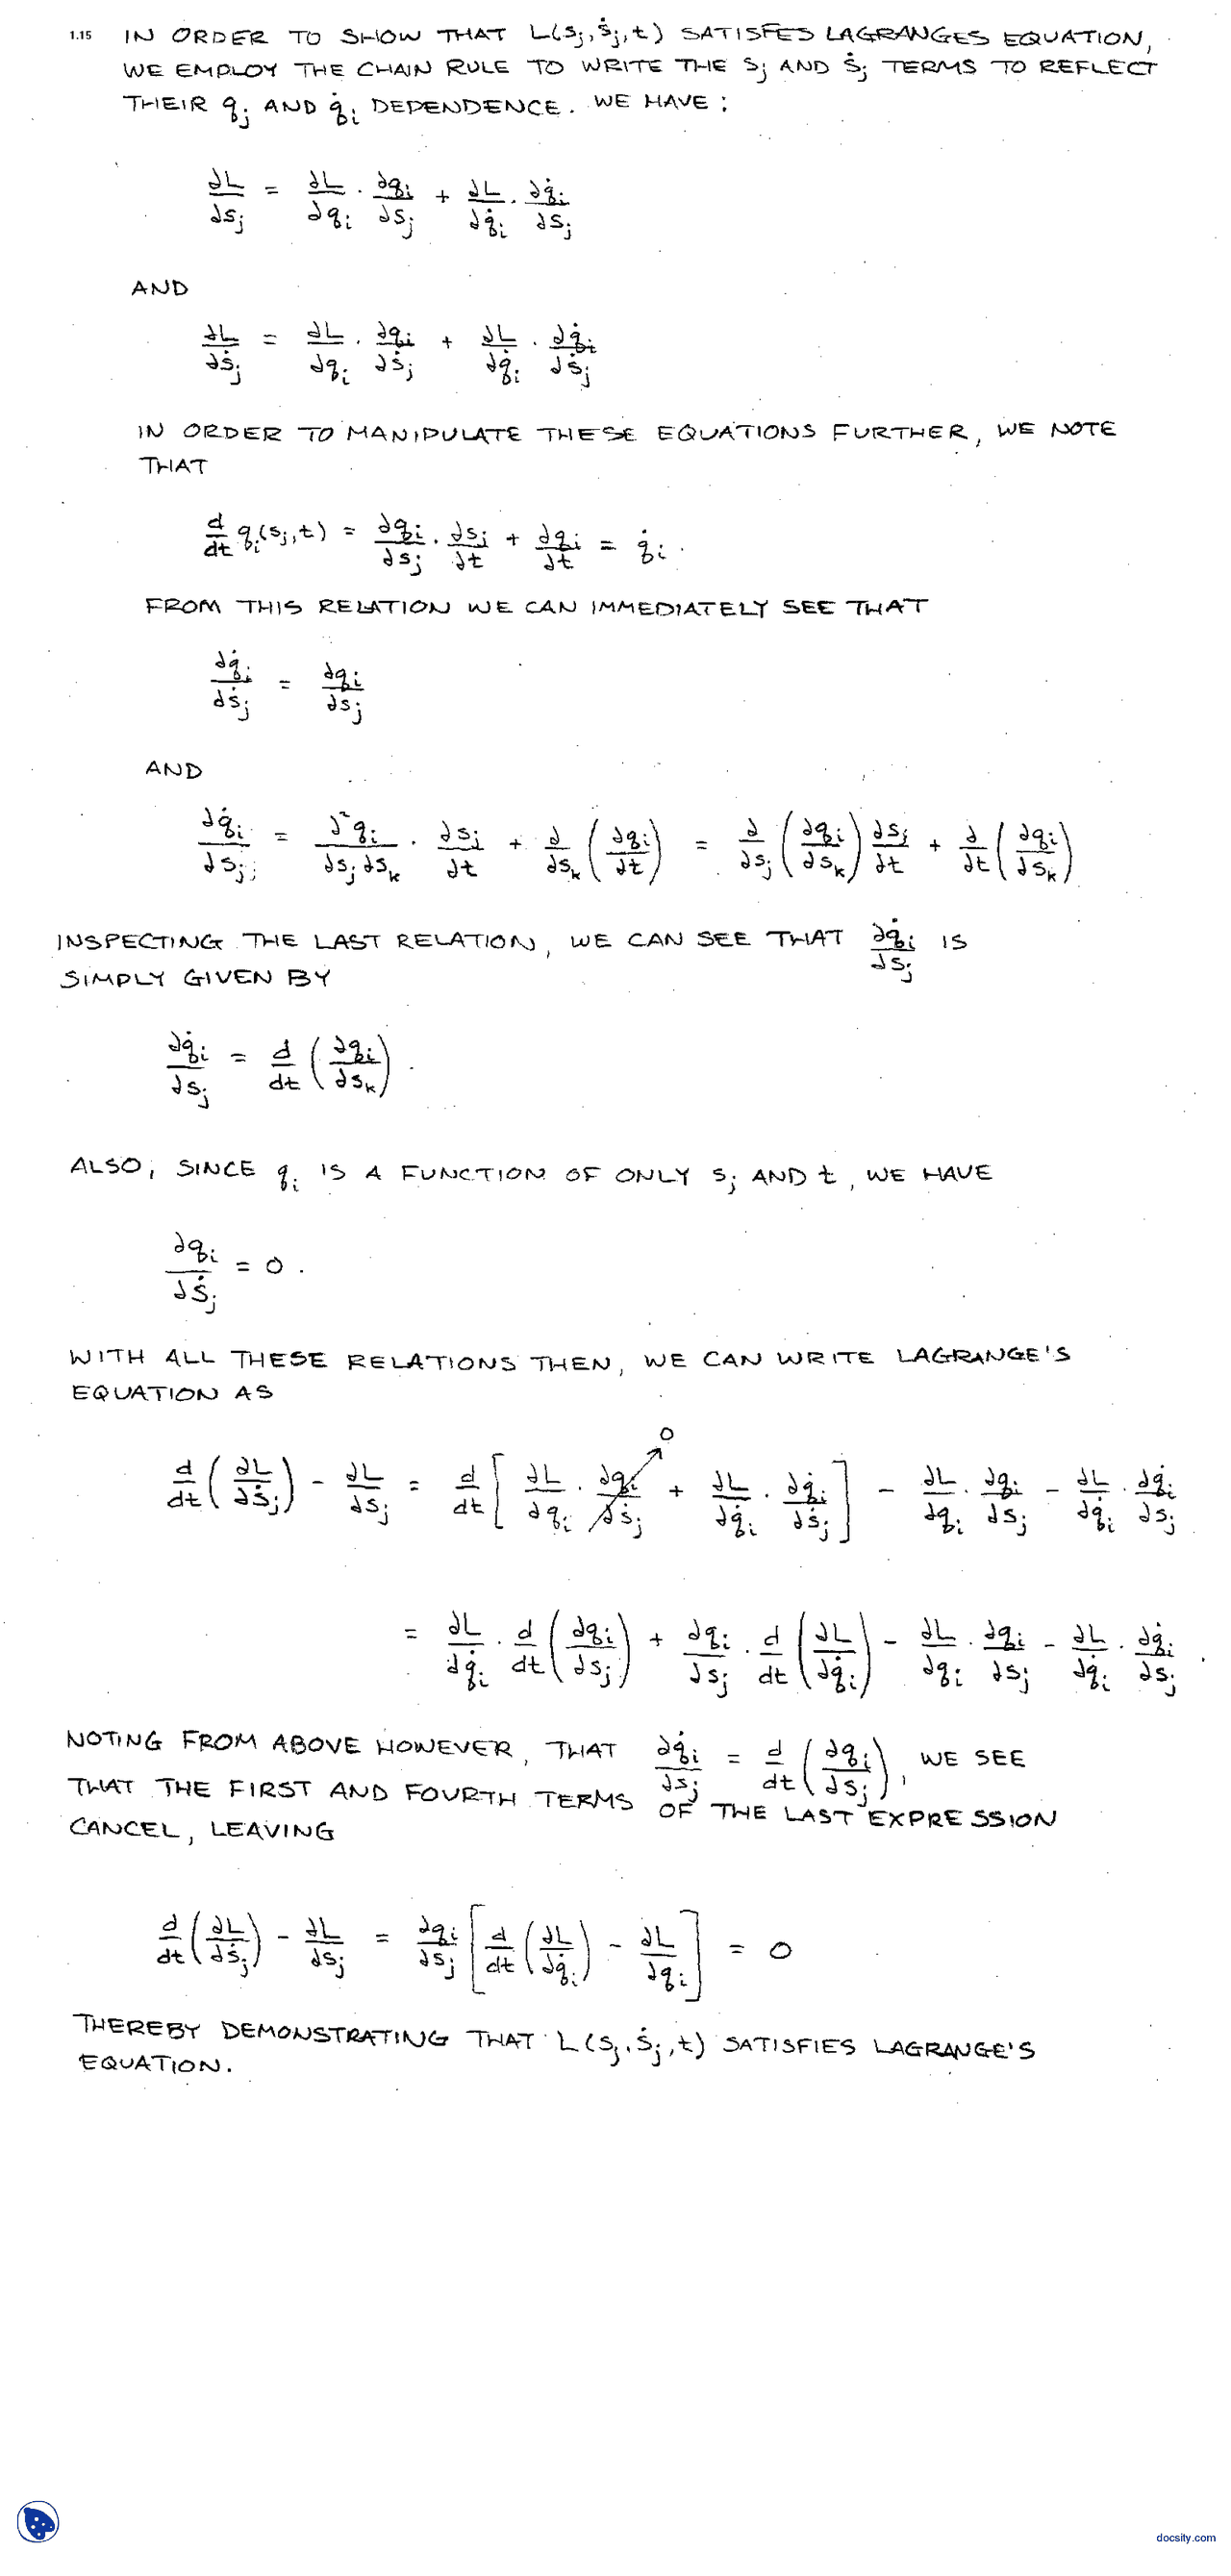 1.15 IN ORDER TO SHOW THAT L(sⱼ, ṡⱼ, t) SATISFES LAGRANGES EQUATION,
WE EMPLOY THE CHAIN RULE TO WRITE THE sⱼ AND ṡⱼ TERMS TO REFLECT
THEIR qⱼ AND q̇ᵢ DEPENDENCE. WE HAVE:
∂L/∂sⱼ = ∂L/∂qᵢ · ∂qᵢ/∂sⱼ + ∂L/∂q̇ᵢ · ∂q̇ᵢ/∂sⱼ
AND
∂L/∂ṡⱼ = ∂L/∂qᵢ · ∂qᵢ/∂ṡⱼ + ∂L/∂q̇ᵢ · ∂q̇ᵢ/∂ṡⱼ
IN ORDER TO MANIPULATE THESE EQUATIONS FURTHER, WE NOTE
THAT
d/dt qᵢ(sⱼ, t) = ∂qᵢ/∂sⱼ · ∂sⱼ/∂t + ∂qᵢ/∂t = q̇ᵢ.
FROM THIS RELATION WE CAN IMMEDIATELY SEE THAT
∂q̇ᵢ/∂ṡⱼ = ∂qᵢ/∂sⱼ
AND
∂q̇ᵢ/∂sⱼ = ∂²qᵢ/∂sⱼ∂sₖ · ∂sⱼ/∂t + ∂/∂sₖ (∂qᵢ/∂t) = ∂/∂sⱼ (∂qᵢ/∂sₖ) ∂sⱼ/∂t + ∂/∂t (∂qᵢ/∂sₖ)
INSPECTING THE LAST RELATION, WE CAN SEE THAT ∂q̇ᵢ/∂sⱼ IS
SIMPLY GIVEN BY
∂q̇ᵢ/∂sⱼ = d/dt (∂qᵢ/∂sₖ).
ALSO, SINCE qᵢ IS A FUNCTION OF ONLY sⱼ AND t, WE HAVE
∂qᵢ/∂ṡⱼ = 0.
WITH ALL THESE RELATIONS THEN, WE CAN WRITE LAGRANGE'S
EQUATION AS
0
d/dt (∂L/∂ṡⱼ) - ∂L/∂sⱼ = d/dt [∂L/∂qᵢ · ∂qᵢ/∂ṡⱼ + ∂L/∂q̇ᵢ · ∂q̇ᵢ/∂ṡⱼ] - ∂L/∂qᵢ · ∂qᵢ/∂sⱼ - ∂L/∂q̇ᵢ · ∂q̇ᵢ/∂sⱼ
= ∂L/∂q̇ᵢ · d/dt (∂qᵢ/∂sⱼ) + ∂qᵢ/∂sⱼ · d/dt (∂L/∂q̇ᵢ) - ∂L/∂qᵢ · ∂qᵢ/∂sⱼ - ∂L/∂q̇ᵢ · ∂q̇ᵢ/∂sⱼ.
NOTING FROM ABOVE HOWEVER, THAT ∂q̇ᵢ/∂sⱼ = d/dt (∂qᵢ/∂sⱼ), WE SEE
THAT THE FIRST AND FOURTH TERMS OF THE LAST EXPRESSION
CANCEL, LEAVING
d/dt (∂L/∂ṡⱼ) - ∂L/∂sⱼ = ∂qᵢ/∂sⱼ [d/dt (∂L/∂q̇ᵢ) - ∂L/∂qᵢ] = 0
THEREBY DEMONSTRATING THAT L(sⱼ, ṡⱼ, t) SATISFIES LAGRANGE'S
EQUATION.
docsity.com